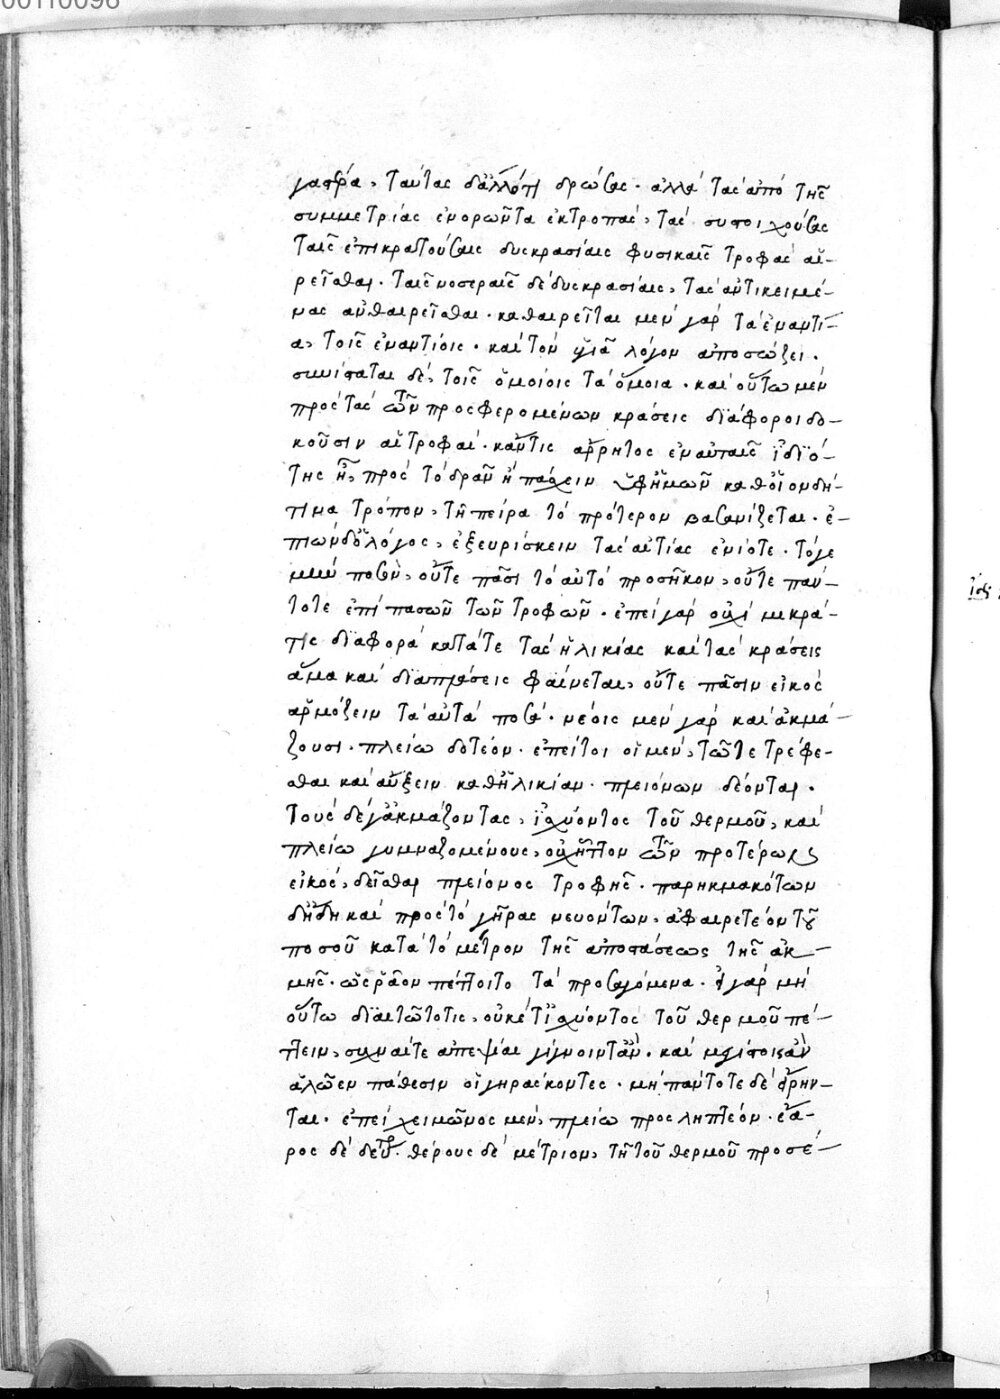 00110096
γαστρα, ταύτας δ' ἀλλότι δρώσας. ἀλλὰ τὰς ἀπὸ τῆς
συμμετρίας ἐνορῶντα ἐκτροπὰς, τὰς συστοιχούσας
ταῖς ἐπικρατούσαις δυσκρασίαις φυσικαῖς τροφὰς αἱ-
ρεῖσθαι. ταῖς νοσεραῖς δὲ δυσκρασίαις, τὰς ἀντικειμέ-
νας ἀνθαιρεῖσθαι. καθαιρεῖται μὲν γὰρ τὰ ἐναντί-
α, τοῖς ἐναντίοις. καὶ τὸν λόγον ἀποσώζει.
συνίσταται δὲ, τοῖς ὁμοίοις τὰ ὅμοια. καὶ οὕτω μὲν
πρὸς τὰς τῶν προσφερομένων κράσεις διάφοροι δο-
κοῦσιν αἱ τροφαί. κἄν τις ἄρρητος ἐν αὐταῖς ἰδιό-
της ᾖ, πρὸς τὸ δρᾶν ἢ πάσχειν ὑφ' ἡμῶν καθ' οἷον δή-
τινα τρόπον, τῇ πείρᾳ τὸ πρότερον βασανίζεται. ἐ-
πιὼν δ' ὁ λόγος, ἐξευρίσκειν τὰς αἰτίας ἐνίοτε. τό γε
μὴν ποσὸν, οὔτε πᾶσι τὸ αὐτὸ προσῆκον, οὔτε πάν-
τοτε ἐπὶ πασῶν τῶν τροφῶν. ἐπεὶ γὰρ οὐχὶ μικρά
τις διαφορὰ κατά τε τὰς ἡλικίας καὶ τὰς κράσεις
ἅμα καὶ διαπλάσεις φαίνεται, οὔτε πᾶσιν εἰκὸς
ἁρμόζειν τὰ αὐτὰ ποσά. νέοις μὲν γὰρ καὶ ἀκμά-
ζουσι, πλείω δοτέον. ἐπεί τοι οἱ μὲν, τῶ τε τρέφε-
σθαι καὶ αὔξειν καθ' ἡλικίαν, πλειόνων δέονται.
τοὺς δέ γ' ἀκμάζοντας, ἰσχύοντος τοῦ θερμοῦ, καὶ
πλείω γυμναζομένους, οὐχ ἧττον τῶν προτέρων
εἰκὸς, δεῖσθαι πλείονος τροφῆς. παρηκμακότων
δ' ἤδη καὶ πρὸς τὸ γῆρας νευόντων, ἀφαιρετέον τοῦ
ποσοῦ κατὰ τὸ μέτρον τῆς ἀποστάσεως τῆς ἀκ-
μῆς. ὡς ῥᾷον πέπτοιτο τὰ προσαγόμενα. εἰ γὰρ μὴ
οὕτω διαιτῶτό τις, οὐκέτ' ἰσχύοντος τοῦ θερμοῦ πέ-
πτειν, συχναί τε ἀπεψίαι γίγνοιντ' ἂν. καὶ ἂν
ἁλῶεν πάθεσιν οἱ γηράσκοντες. μὴ πάντοτε δὲ εἴρην-
ται. ἐπεὶ χειμῶνος μὲν, πλείω προσληπτέον. ἔα-
ρος δὲ θέρους δὲ μέτριον, τῇ τοῦ θερμοῦ προσέ-